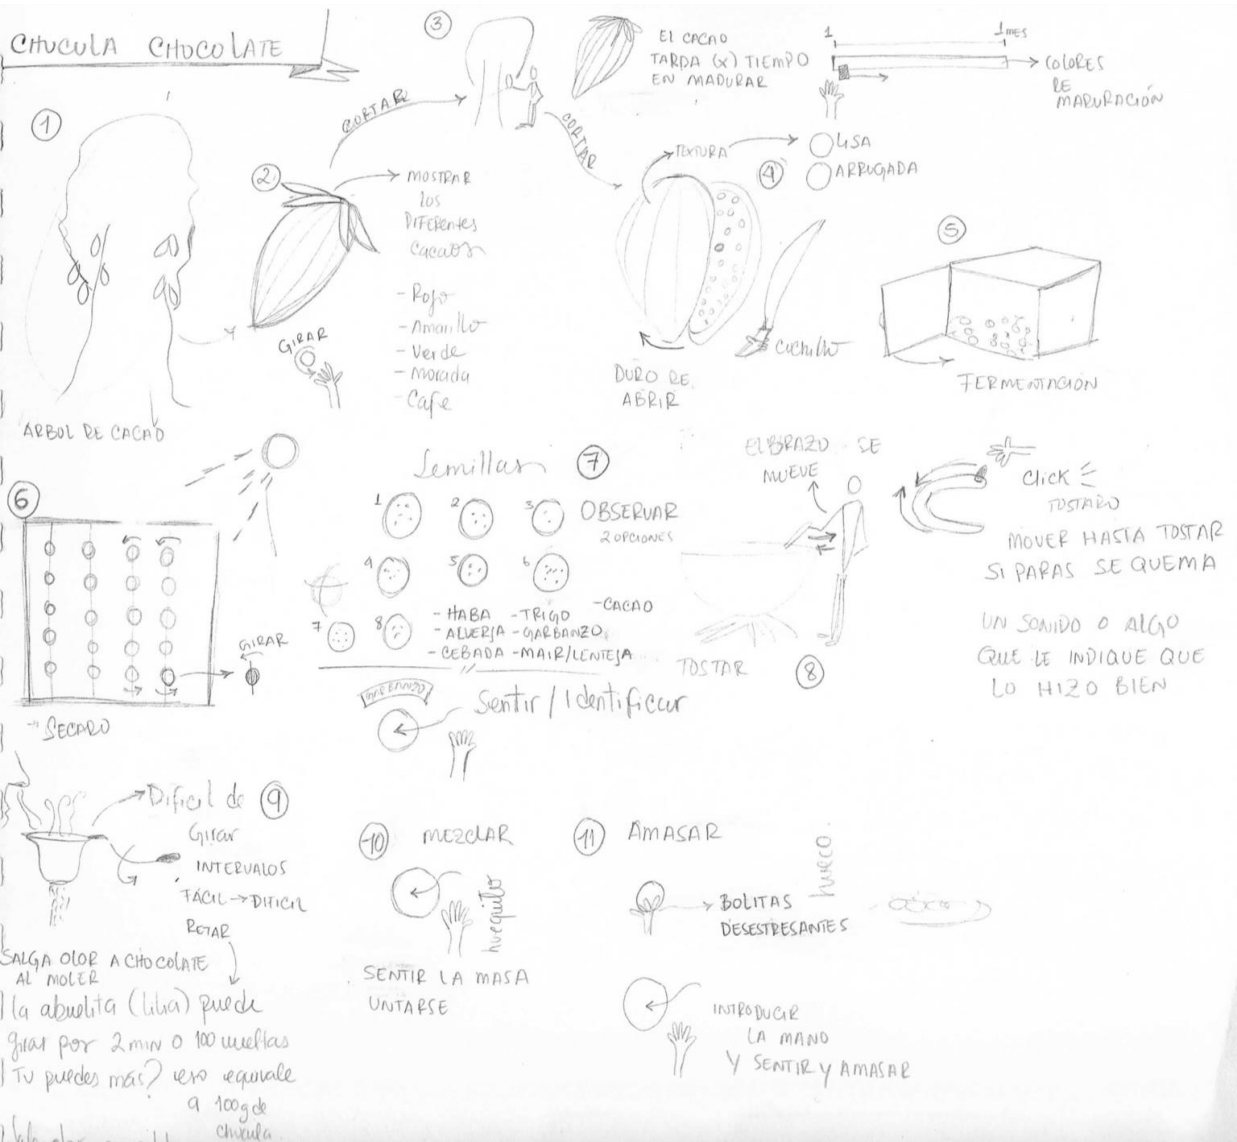 CHUCULA CHOCOLATE
1
ÁRBOL DE CACAO
2
GIRAR
MOSTRAR
los
DIFERENTES
Cacaos
- Rojo
- Amarillo
- Verde
- Morada
- Cafe
CORTAR
3
CORTAR
EL CACAO
TARDA (x) TIEMPO
EN MADURAR
1
1 MES
COLORES
DE
MADURACIÓN
TEXTURA
4
LISA
ARRUGADA
DURO DE
ABRIR
CUCHILLO
5
FERMENTACIÓN
6
GIRAR
SECADO
Semillas 7
1 2 3
OBSERVAR
2 OPCIONES
4 5 6
7 8
- HABA - TRIGO - CACAO
- ALVERJA - GARBANZO
- CEBADA - MAIR/LENTEJA
GARBANZO
Sentir / Identificar
EL BRAZO SE
MUEVE
TOSTAR
8
Click
TOSTARO
MOVER HASTA TOSTAR
SI PARAS SE QUEMA
UN SONIDO O ALGO
QUE LE INDIQUE QUE
LO HIZO BIEN
Dificil de 9
Girar
INTERVALOS
FÁCIL → DIFICIL
RETAR
SALGA OLOR A CHOCOLATE
AL MOLER
la abuelita (lilia) puede
girar por 2 min o 100 vueltas
Tu puedes más? eso equivale
a 100g de
chucula
10 MEZCLAR
huequito
SENTIR LA MASA
UNTARSE
11 AMASAR
hueco
BOLITAS
DESESTRESANTES
INTRODUCIR
LA MANO
Y SENTIR Y AMASAR